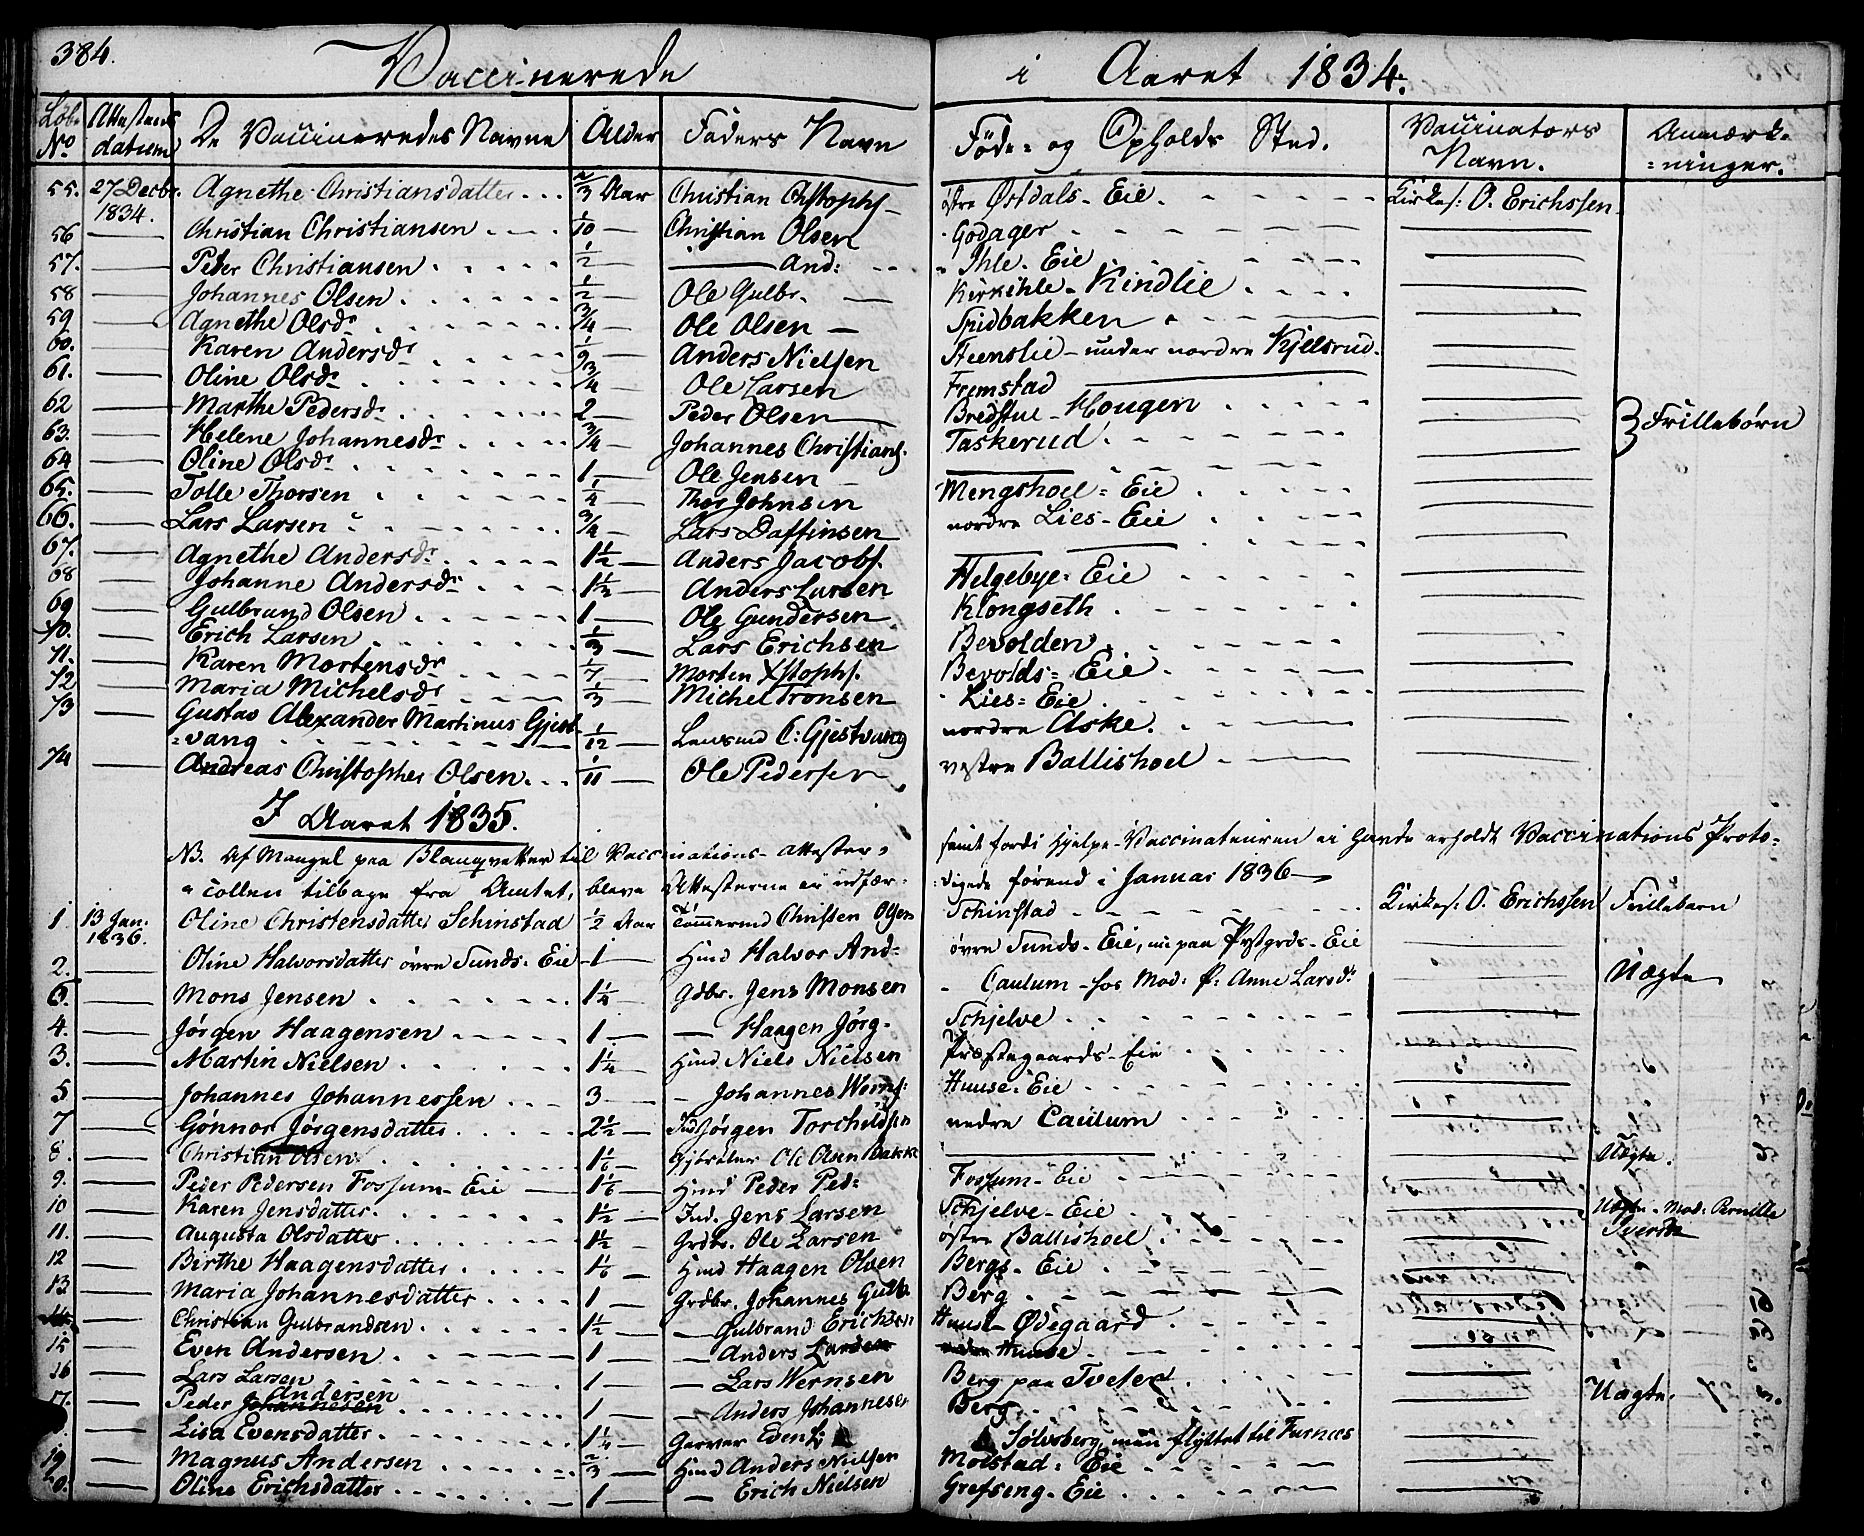 384.
Vaccinerede i Aaret 1834.
Løbe No Attestens datum De Vaccineredes Navne Alder Faders Navn Føde- og Opholds Sted. Vaccinators Navn. Anmærk- =ninger.
55. 27 Decbr. 1834. Agnethe Christiansdatter 2/3 Aar Christian Chstophs- østre Østdals-Eie. Kirkes: O. Erichssen
56 — Christian Christiansen 1/10 — Christian Olsen Godager —
57. — Peder Christiansen 1/2 — — And: Ihle-Eie —
58 — Johannes Olsen 1/2 — Ole Gulbr. — Kirkihle-Kindlie —
59 — Agnethe Olsdr 3/4 — Ole Olsen — bakken —
60. — Karen Andersdr 1/9 — Anders Nielsen Steenslie-under nordre Kjelsrud. —
61. — Oline Olsdr 3/4 — Ole Larsen Fremstad —
62 — Marthe Pedersdr 2 — Peder Olsen Bredstue-Hougen — 3 Frillebørn
63. — Helene Johannesdr 3/4 — Johannes Christians. Taskerud —
64 — Oline Olsdr 1 — Ole Jensen — —
65. — Tolle Thorsen 1/4 — Thor Johnsen Mengshoel=Eie —
66. — Lars Larsen 3/4 — Lars Daffinsen nordre Lies-Eie —
67. — Agnethe Andersdr 1 1/2 — Anders Jacobs. — — —
68 — Johanne Andersdr 1 1/2 — Anders Larsen Helgebye=Eie —
69 — Gulbrand Olsen 1 — Ole Gundersen Klongseth —
70. — Erich Larsen 1/3 — Lars Erichsen Bevolden —
71. — Karen Mortensdr 1/7 — Morten Xstophs. Bevolds=Eie —
72 — Maria Michelsdr 1/3 — Michel Tronsen Lies=Eie —
73 — Gustav Alexander Martinus Gjest-
=vang 1/12 — Lensmd C: Gjestvang nordre Aske. —
74 — Andreas Christopher Olsen 1/11 — Ole Pedersen vestre Ballishoel —
I Aaret 1835.
NB. Af Mangel paa Blanqvetter til Vaccinations-Attester, samt fordi Hjelpe-Vaccinateuren ei havde erholdt Vaccinations Proto=
=collen tilbage fra Amtet, bleve Attesterne ei udfær- =digede førend i Januar 1836 —
1. 13 Jan. 1836. Oline Christensdatter Schinstad 1/2 Aar Tømmermd Christen Olsen Schinstad Kirkes: O. Erichssen Frillebarn
2. — Oline Halvorsdatter øvre Sunds-Eie 1 — Hmd Halvor And- øvre Sunds-Eie, nu paa Prstgrds-Eie —
6. — Mons Jensen 1 1/4 — Gdbr. Jens Monsen Caulum-hos Mad: P: Anne Larsdr — Uægte
4. — Jørgen Haagensen 1 — — Haagen Jørg- Schjelve —
3. — Martin Nielsen 1 1/4 Hmd Niels Nielsen Præstegaards-Eie —
5 — Johannes Johannessen 3 — — Johannes Werns: Huuse-Eie —
7 — Gønnor Jørgensdatter 2 1/2 — Ind Jørgen Torchildsen nedre Caulum —
8. — Christian Olsen 1 1/6 — Ole Olsen Bakke — — Uægte.
9. — Peder Pedersen Fossum-Eie 1 1/6 — Hmd Peder Ped: Fossum-Eie —
10 — Karen Jensdatter 1 1/2 — Ind. Jens Larsen Schjelve-Eie — Uægte-Mod: Pernille
11. — Augusta Olsdatter 1 1/2 — Grdbr. Ole Larsen østre Ballishoel —
12 — Birthe Haagensdatter 1 1/6 — Hmd Haagen Olsen Bergs-Eie —
13 — Maria Johannesdatter 1 — Grdbr. Johannes Gulb. Berg —
14. — Christian Gulbrandsen 1 1/2 — — Gulbrand Erichsen Huuse Ødegaard —
15 — Even Andersen 1 — — Anders Larsen nedre Huuse —
16 — Lars Larsen 1 — — Lars Wernsen Berg paa Tveter —
17. — Peder Johannesen Andersen 1 — — Anders Johannesen Berg — Uægte.
— Lisa Evensdatter 1 1/4 — Garver Even Sølvsberg, men flyttet til Furnes —
19 — Magnus Andersen 2/3 — Hmd Anders Nielsen Molstad=Eie —
20. — Oline Erichsdatter 1 — — Erich Nielsen Grefseng-Eie —